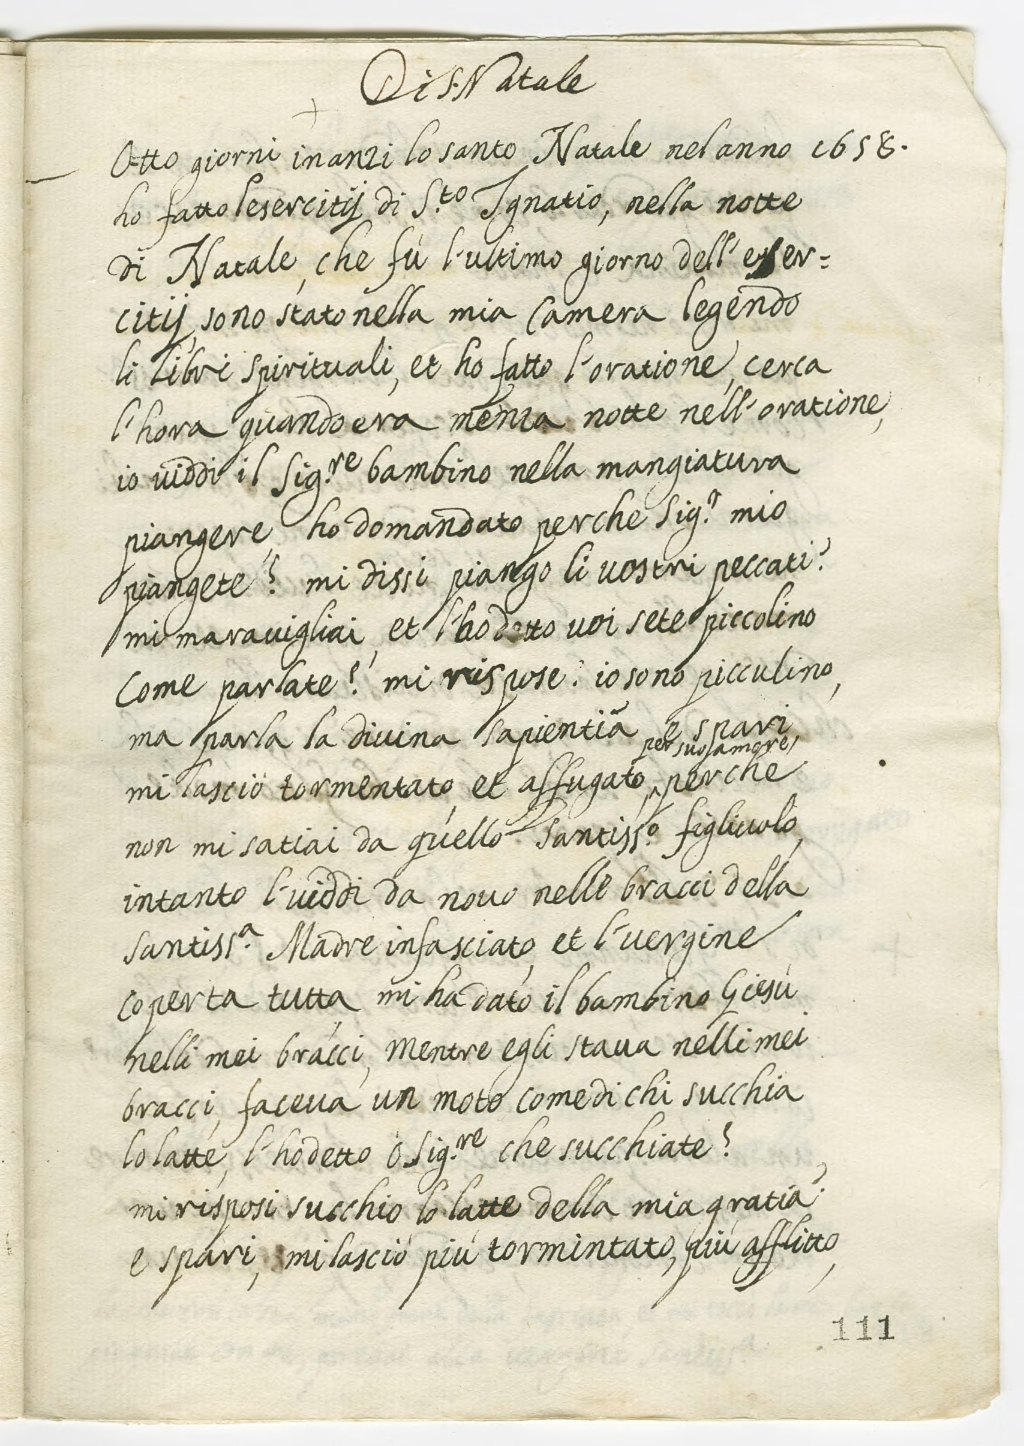 Di S. Natale
Otto giorni inanzi lo santo Natale nel anno 1658.
ho fatto lesercitij di S.to Ignatio, nella notte
di Natale, che fù l'ultimo giorno dell' eser=
citij, sono stato nella mia Camera legendo
li libri spirituali, et ho fatto l'oratione, cerca
l'hora quando era menza notte nell' oratione,
io uiddi il Sig.re bambino nella mangiatura
piangere, ho domandato perche Sig.r mio
piangete? mi dissi piango li uostri peccati:
mi marauigliai, et l'ho detto uoi sete piccolino
Come parlate? mi rispose: io sono picculino,
ma parla la diuina sapientia, e spari
per suo amore,
mi lasciò tormentato, et affugato, perche
non mi satiai da quello Santiss.o figliuolo,
intanto l'uiddi da nouo nelle bracci della
Santiss.a Madre infasciato, et l'uergine
coperta tutta mi ha dato il bambino Giesù
nelli mei bracci, mentre egli staua nelli mei
bracci, faceua un moto come di chi succhia
lo latte, l'ho detto ò Sig.re che succhiate?
mi risposi succhio lo latte della mia gratia:
e spari, mi lasciò più tormintato, più afflitto,
111